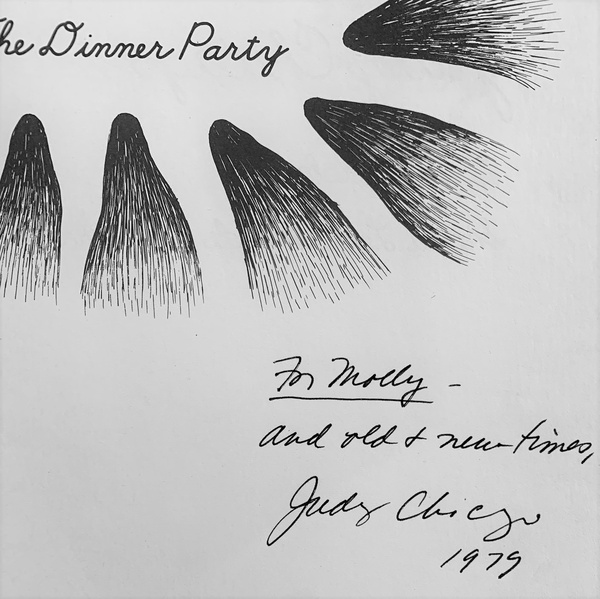 he Dinner Party
For Molly -
and old & new times,
Judy Chicago
1979